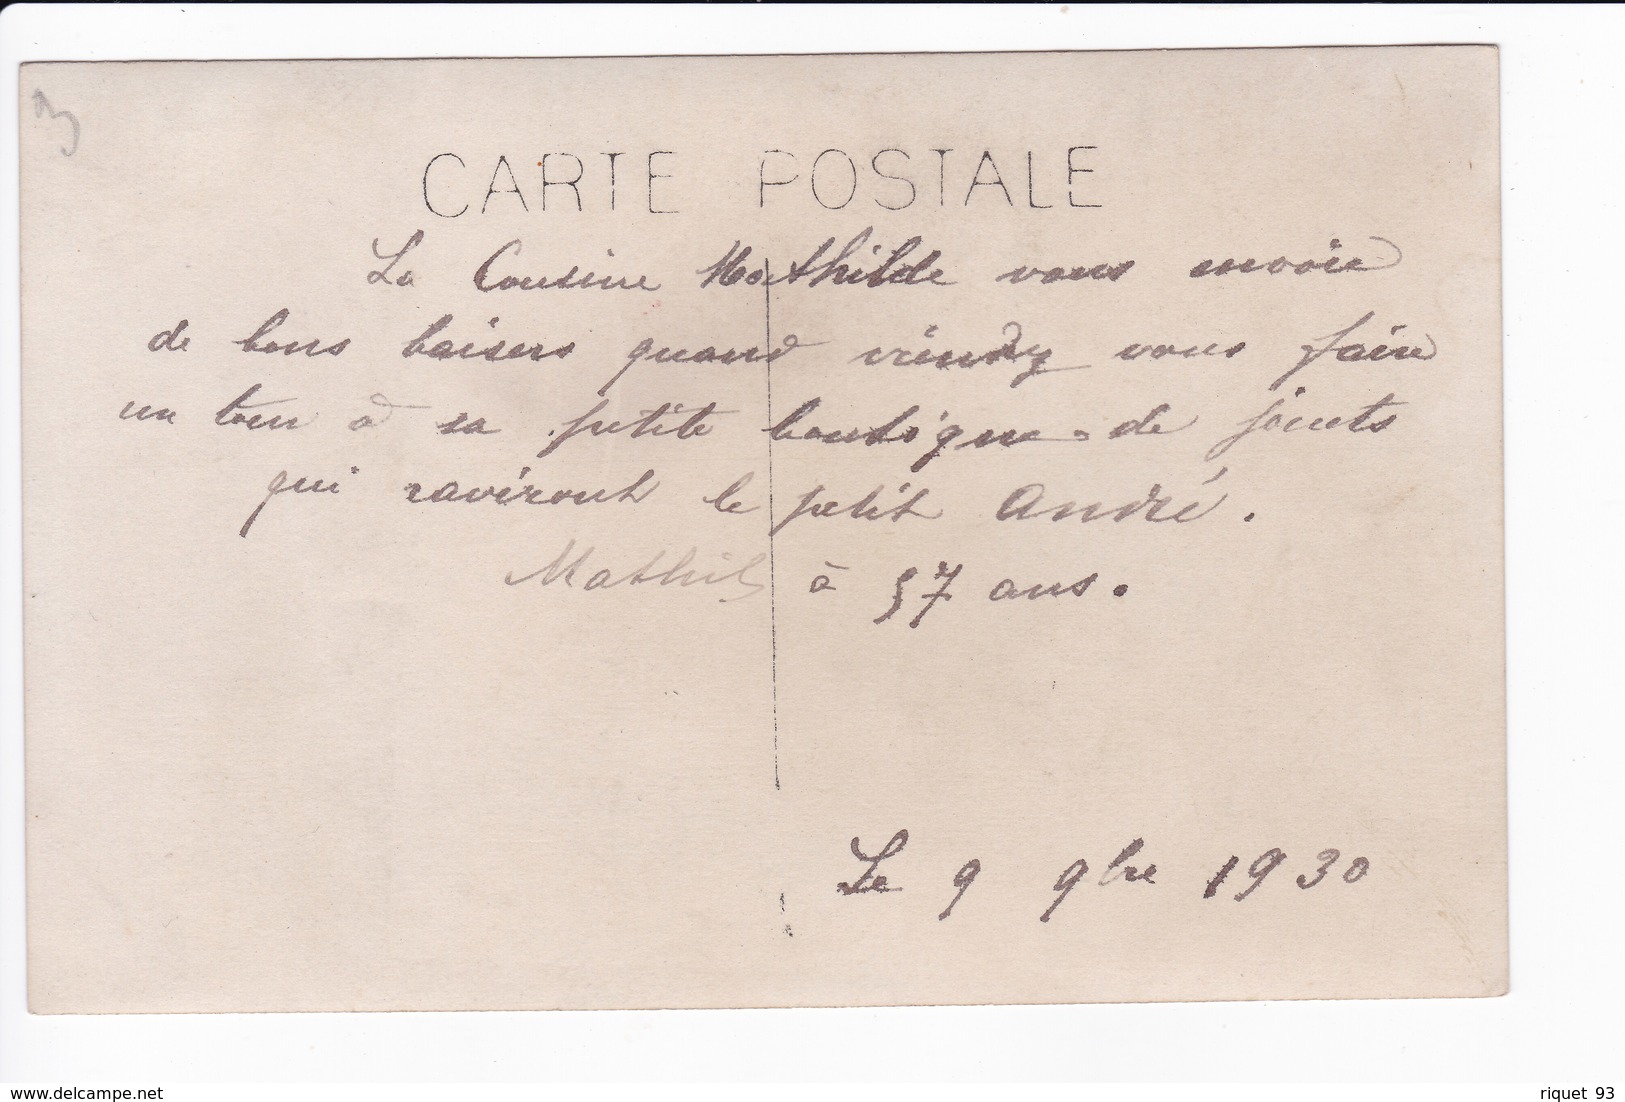 3
CARTE POSTALE
La Cousine Mathilde vous envoie
de bons baisers quand viendez vous faire
un tour à sa petite boutique de jouets
qui raviront le petit André.
Mathil à 57 ans.
Le 9 9bre 1930
riquet 93